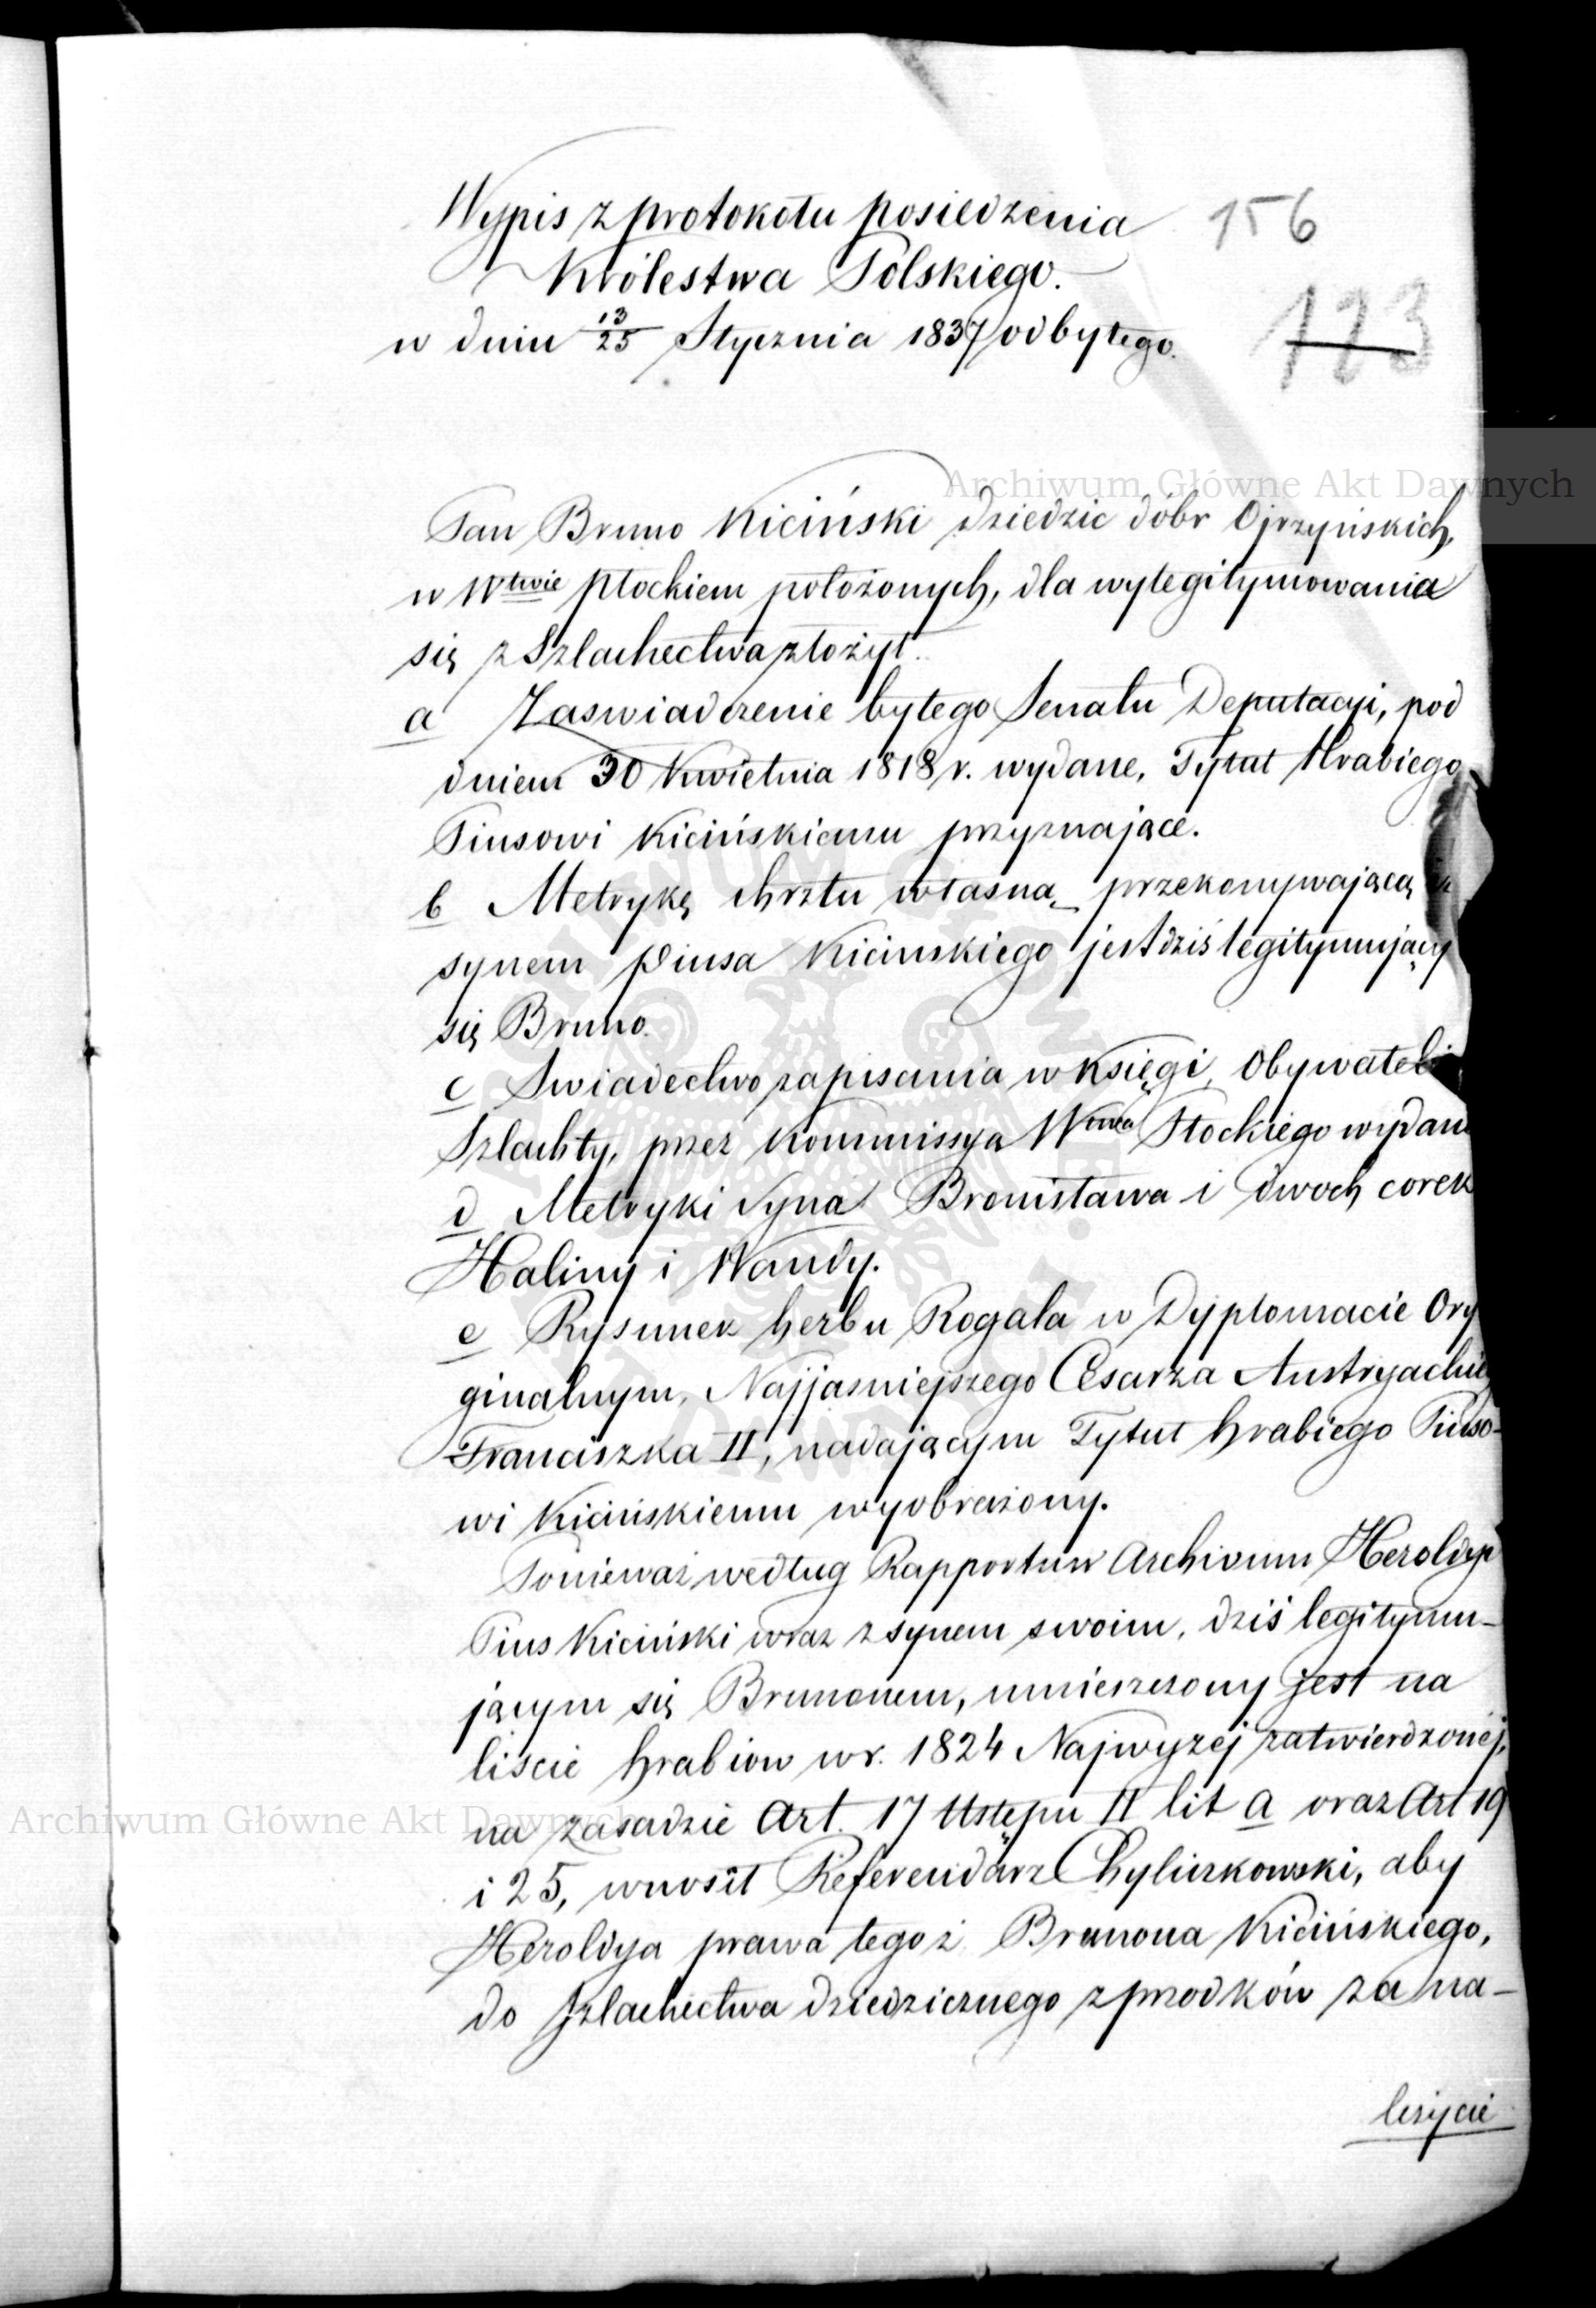 Wypis z protokołu posiedzenia
156
Królestwa Polskiego.
w dniu 13/25 Stycznia 1837 odbytego.
123
Archiwum Główne Akt Dawnych
Pan Bruno Kiciński dziedzic dóbr Ojrzyńskich,
w Wtwie Płockiem położonych, dla wylegitymowania
się z Szlachectwa złożył.
a Zaswiadczenie byłego Senatu Deputacyi, pod
dniem 30 Kwietnia 1818 r. wydane, Tytuł Hrabiego
Piusowi Kicińskiemu przyznające.
b Metrykę chrztu własną, przekonywającą
synem Piusa Kicinskiego jest dziś legitymujący
się Bruno.
c Swiadectwo zapisania w Księgi, Obywateli
Szlachty, przez Kommissya Wtwa Płockiego wydan
d Metryki Syna Bronisława i dwoch corek
Haliny i Wandy.
e Rysunek herbu Rogala w Dyplomacie Ory
ginalnym, Najjasniejszego Cesarza Austryackieg
Franciszka II, nadającym Tytuł hrabiego Piuso-
wi Kicińskiemu wyobrażony.
Ponieważ według Rapportu Archivum Heroldyi
Pius Kiciński wraz z synem swoim, dziś legitymu-
jącym się Brunonem, umieszczony jest na
liscie hrabiow w r. 1824 Najwyżej zatwierdzonej,
Archiwum Główne Akt Dawnych
na zasadzie Art. 17 Ustępu II lit a oraz Art 19
i 25, wnosił Referendarz Chyliczkowski, aby
Heroldya prawa tegoż Brunona Kicińskiego,
do Szlachectwa dziedzicznego z przodków za na-
leżycie